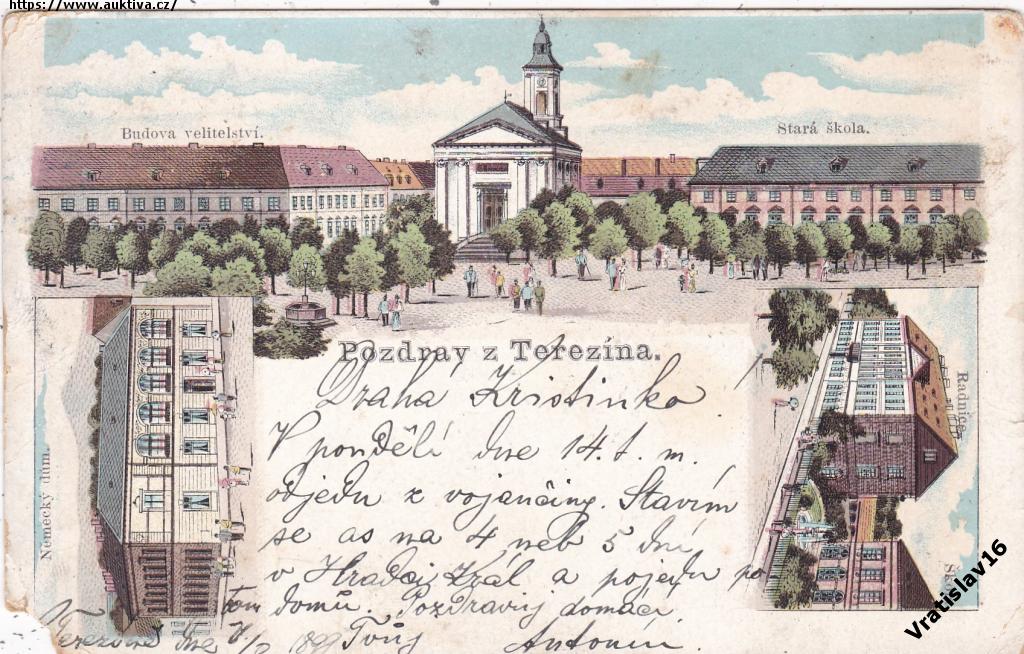 https://www.auktiva.cz/
Budova velitelství.
Stará škola.
Pozdrav z Terezína.
Německý dům.
Radnice.
Drahá Kristinko!
V pondělí dne 14. t. m.
odjedu z vojančiny. Stavím
se as na 4 neb 5 dní
v Hradci Král a pojedu po
tom domů. Pozdravuj domácí
Tvůj Antonín.
dne 1899
Vratislav16